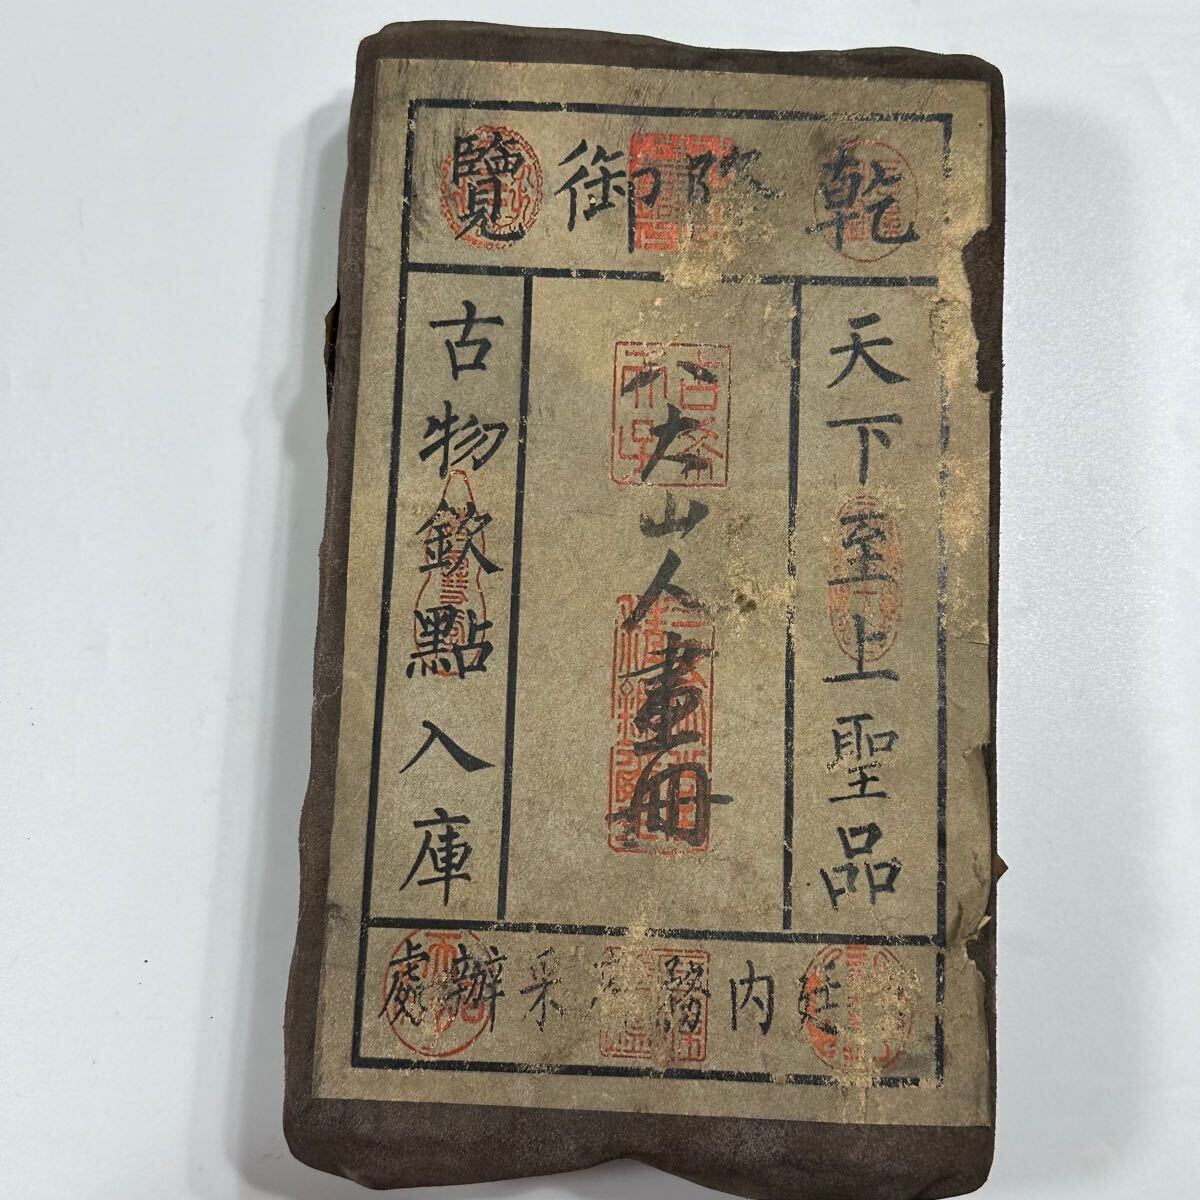 乾隆御覽
天下至上聖品
八大山人畫冊
古物欽點入庫
廷內務府采辦處